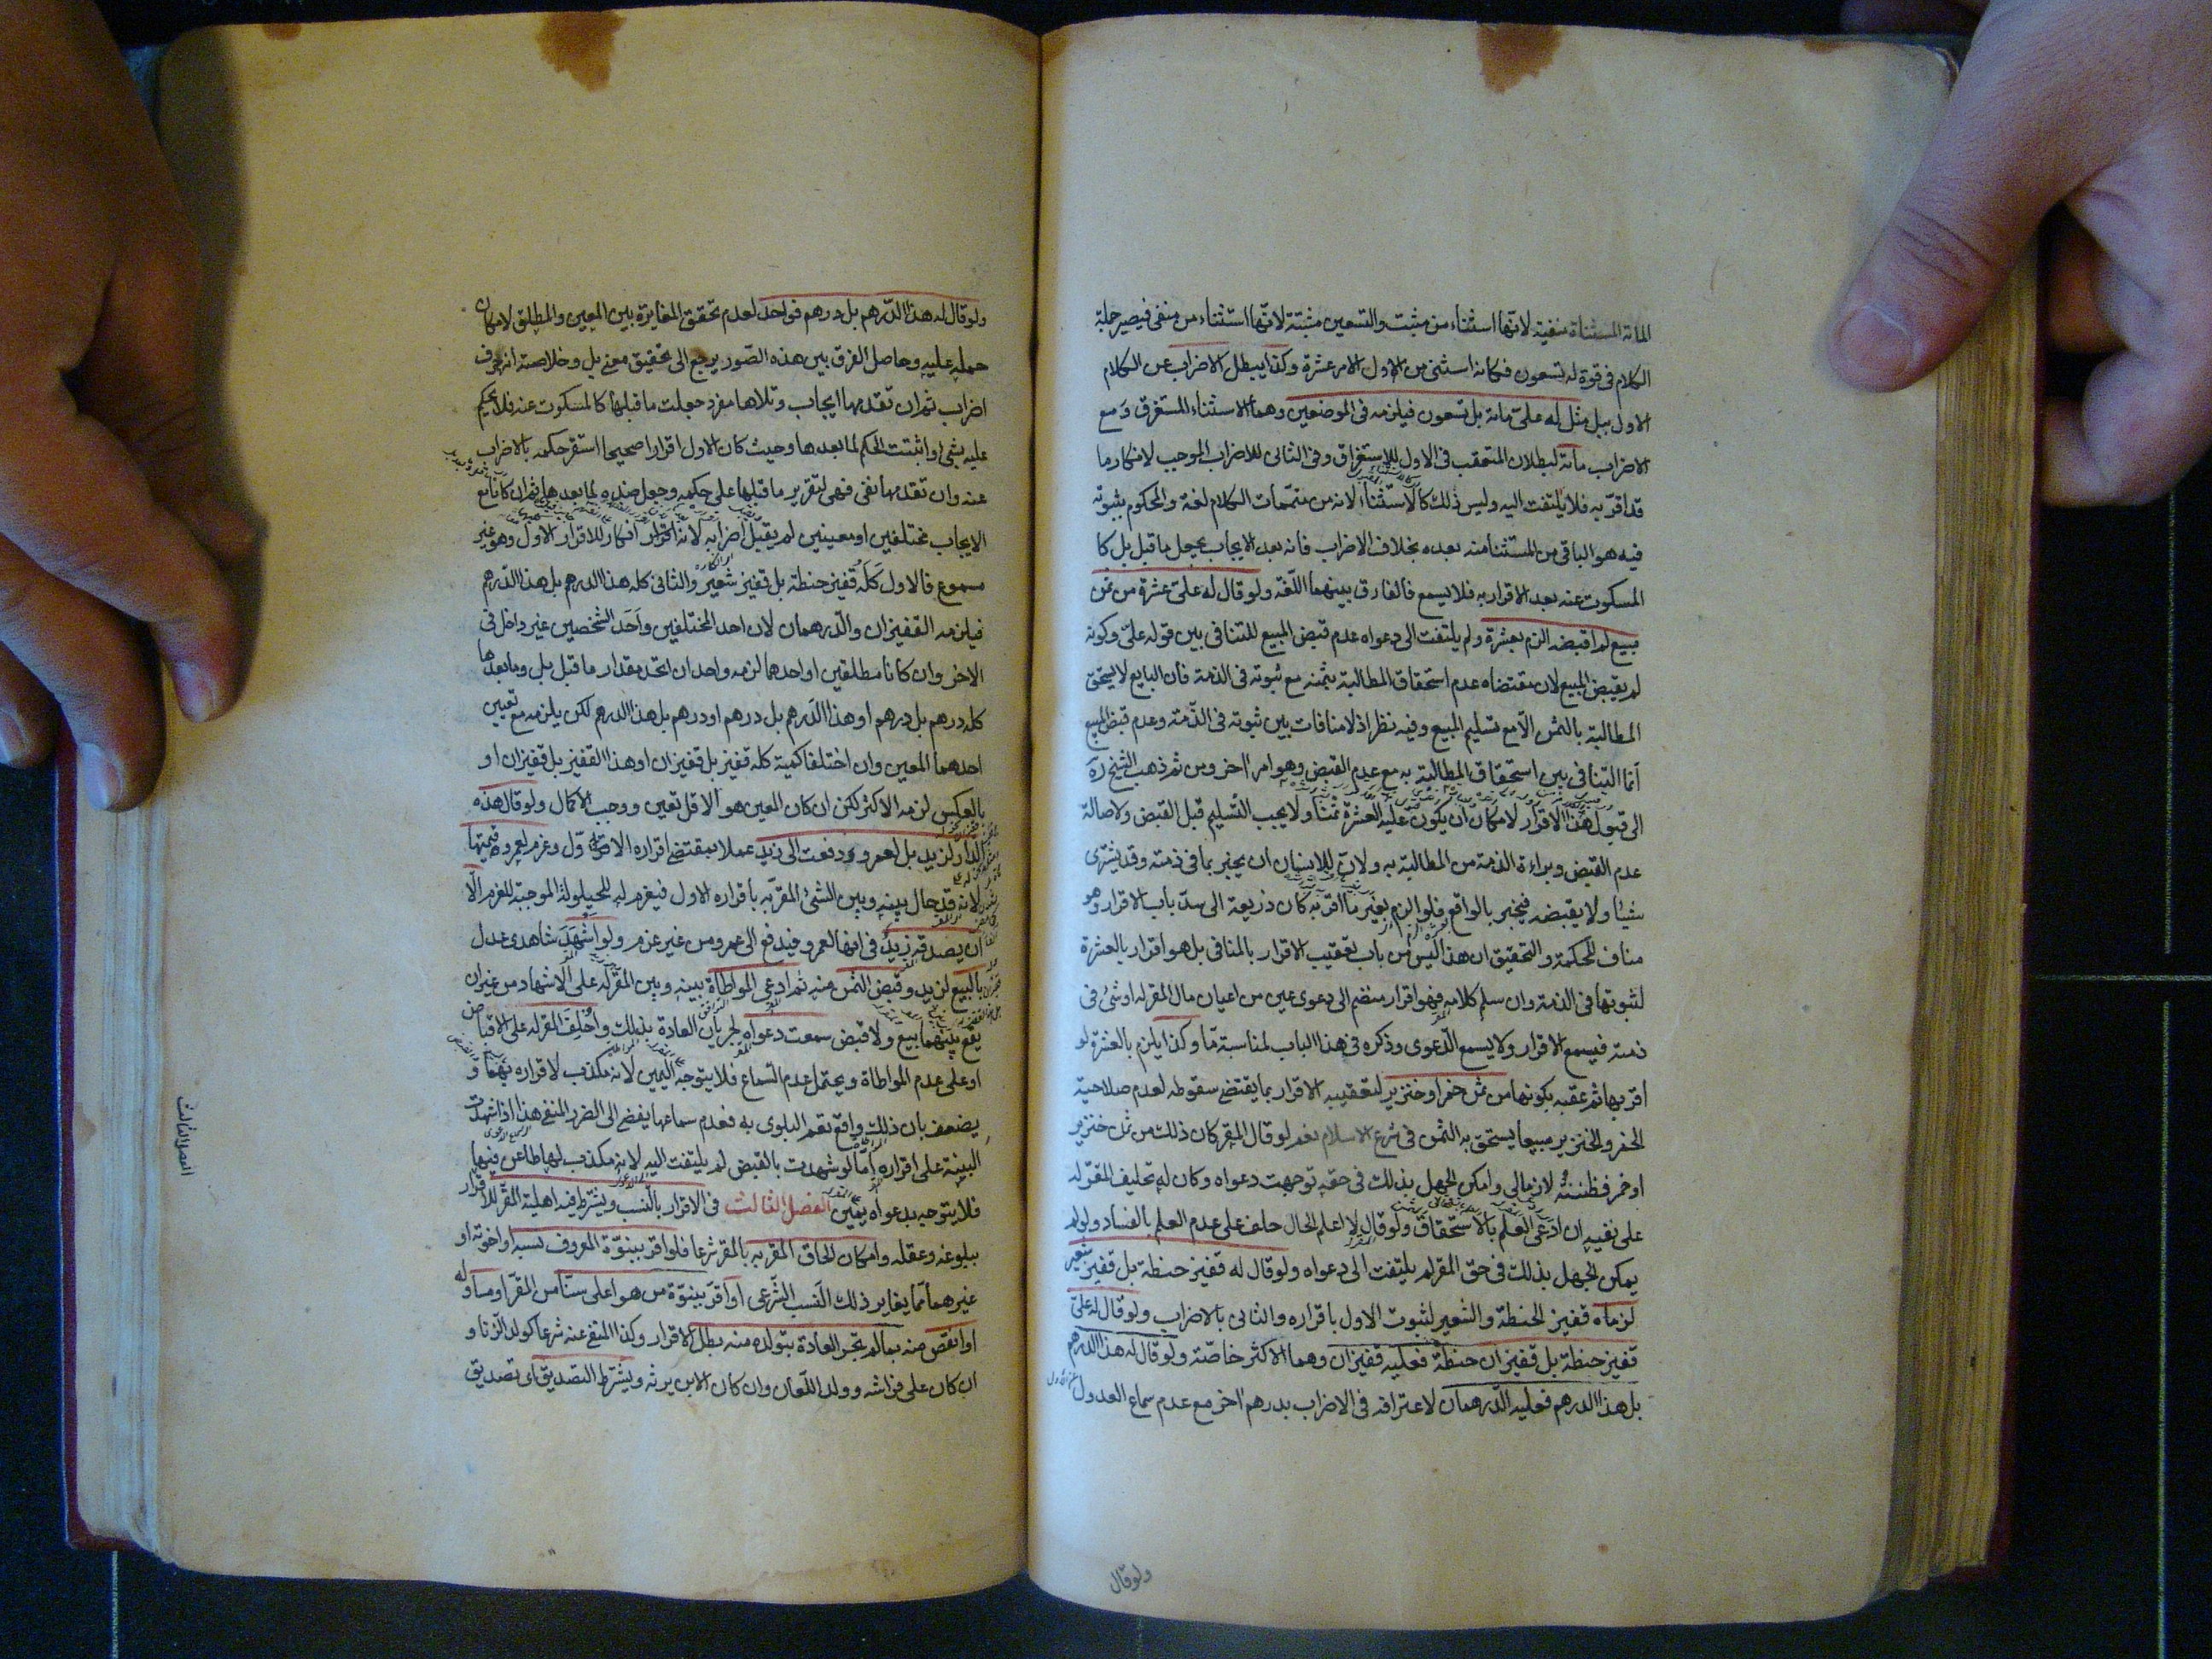 المائة المستثناة منفية لانها استثناء من مثبت والتسعين مثبتة لانها استثناء من منفي فيصير جملة
الكلام في قوة له تسعون فكانه استثنى من الاول الامر عشرة وكذا يبطل الاضراب عن الكلام
الاول ببل مثل له على مائة بل تسعون فيلزمه في الموضعين وهما الاستثناء المستغرق ومع
الاضراب مائة لبطلان المتعقب في الاول للاستغراق وفي الثاني للاضراب الموجب لانكار ما
قد اقر به فلا يلتفت اليه وليس ذلك كالاستثناء لانه من متممات الكلام لغة والمحكوم بثبوته
فيه هو الباقي من المستثنا منه بعده بخلاف الاضراب فانه بعد الايجاب يجعل ما قبل بل كا
المسكوت عنه بعد الاقرار به فلا يسمع فالفارق بينهما اللغة ولو قال له على عشرة من ثمن
مبيع لم اقبضه الزم بعشرة ولم يلتفت الى دعواه عدم قبض المبيع للتنافي بين قوله على وكونه
لم يقبض المبيع لان مقتضاه عدم استحقاق المطالبة بثمنه مع ثبوته في الذمة فان البايع لا يستحق
المطالبة بالثمن الا مع تسليم المبيع وفيه نظر اذ لا منافات بين ثبوته في الذمة وعدم قبض المبيع
انما التنافي بين استحقاق المطالبة به مع عدم القبض وهو امر اخر ومن ثم ذهب الشيخ ره
الى قبول هذا الاقرار لامكان ان يكون عليه العشرة ثمنا ولا يجب التسليم قبل القبض ولاصالة
عدم القبض وبراءة الذمة من المطالبة به ولان للانسان ان يخبر بما في ذمته وقد يشترى
شيئا ولا يقبضه فيخبر بالواقع فلو الزم بغير ما اقر به كان ذريعة الى سد باب الاقرار وهو
مناف للحكمة والتحقيق ان هذا ليس من باب تعقيب الاقرار بالمنافي بل هو اقرار بالعشرة
لثبوتها في الذمة وان سلم كلامه فهو اقرار منضم الى دعوى عين من اعيان مال المقر له او شئ في
ذمته فيسمع الاقرار ولا يسمع الدعوى وذكره في هذا الباب لمناسبة ما وكذا يلزم بالعشرة لو
اقر بها ثم عقبه بكونها من ثمن خمر او خنزير لتعقيبه الاقرار بما يقتضي سقوطه لعدم صلاحية
الخمر والخنزير مبيعا يستحق به الثمن في شرع الاسلام نعم لو قال المقر كان ذلك من ثمن خنزير
او خمر فظننته لازما لي وامكن الجهل بذلك في حقه توجهت دعواه وكان له تحليف المقر له
على نفيه ان ادعى العلم بالاستحقاق ولو قال لا اعلم الحال حلف على عدم العلم بالفساد ولو لم
يمكن الجهل بذلك في حق المقر لم يلتفت الى دعواه ولو قال له قفيز حنطة بل قفيز شعير
لزماه قفيز الحنطة والشعير لثبوت الاول باقراره والثاني بالاضراب ولو قال له على
قفيز حنطة بل قفيزان حنطة فعليه قفيزان وهما الاكثر خاصة ولو قال له هذا الدرهم
بل هذا الدرهم فعليه الدرهمان لاعترافه في الاضراب بدرهم اخر مع عدم سماع العدول
ولو قال
ولو قال له هذا الدرهم بل درهم فواحد لعدم تحقق المغايرة بين المعين والمطلق لامكان
حمله عليه وحاصل الفرق بين هذه الصور يرجع الى تحقيق معنى بل وخلاصته انه حرف
اضراب ثم ان تقدمها ايجاب وتلاها مفرد جعلت ما قبلها كالمسكوت عنه فلا يحكم
عليه بشئ واثبتت الحكم لما بعدها وحيث كان الاول اقرارا صحيحا استقر حكمه بالاضراب
عنه وان تقدمها نفي فهي لتقرير ما قبلها على حكمه وجعل ضده لما بعدها ثم ان كانا مع
الايجاب مختلفين او معينين لم يقبل اضرابه لانه انكار للاقرار الاول وهو غير
مسموع فالاول كله قفيز حنطة بل قفيز شعير والثاني كله هذا الدرهم بل هذا الدرهم
فيلزمه القفيزان والدرهمان لان احد المختلفين واحد الشخصين غير داخل في
الاخر وان كانا مطلقين او احدهما لزمه واحد ان اتحد مقدار ما قبل بل وما بعدها
كله درهم بل درهم او هذا الدرهم بل درهم او درهم بل هذا الدرهم لكن يلزمه مع تعيين
احدهما المعين وان اختلفا كمية كله قفيز بل قفيزان او هذا القفيز بل قفيزان او
بالعكس لزمه الاكثر لكن ان كان المعين هو الاقل تعين ووجب الاكمال ولو قال هذه
الدار لزيد بل لعمرو دفعت الى زيد عملا بمقتضى اقراره الاول وغرم لعمرو قيمتها
لانه قد حال بينه وبين الشئ المقر به باقراره الاول فيغرم له للحيلولة الموجبة للغرم الا
ان يصدقه زيد في انها لعمرو فيدفع الى عمرو من غير غرم ولو اشهد شاهدى عدل
بالبيع لزيد وقبض الثمن منه ثم ادعى المواطاة بينه وبين المقر له على الاشهاد من غير ان
يقع بينهما بيع ولا قبض سمعت دعواه لجريان العادة بذلك واحلف المقر له على الاقباض
او على عدم المواطاة ويحتمل عدم السماع فلا يتوجه اليمين لانه مكذب لاقراره بهما و
يضعف بان ذلك واقع تعم البلوى به فعدم سماعها يفضي الى الضرر المنفي هذا اذا شهدت
البينة على اقراره اما لو شهدت بالقبض لم يلتفت اليه لانه مكذب لها طاعن فيها
فلا يتوجه بدعواه يمين الفصل الثالث في الاقرار بالنسب ويشترط فيه اهلية المقر للاقرار
ببلوغه وعقله وامكان الحاق المقر به بالمقر شرعا فلو اقر ببنوة المعروف نسبه او اخوته او
غيرهما مما يغاير ذلك النسب الشرعي او اقر ببنوة من هو اعلى سنا من المقر او مساو له
او انقص منه بما لم تجر العادة بتولده منه بطل الاقرار وكذا المنفي عنه شرعا كولد الزنا و
ان كان على فراشه وولد اللعان وان كان الابن يرثه ويشترط التصديق اى تصديق
الفصل الثالث